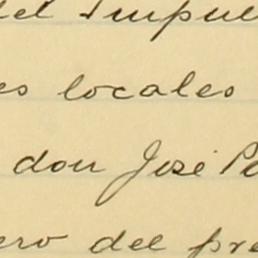 del Impul
es locales
don José Pa
ero del pre